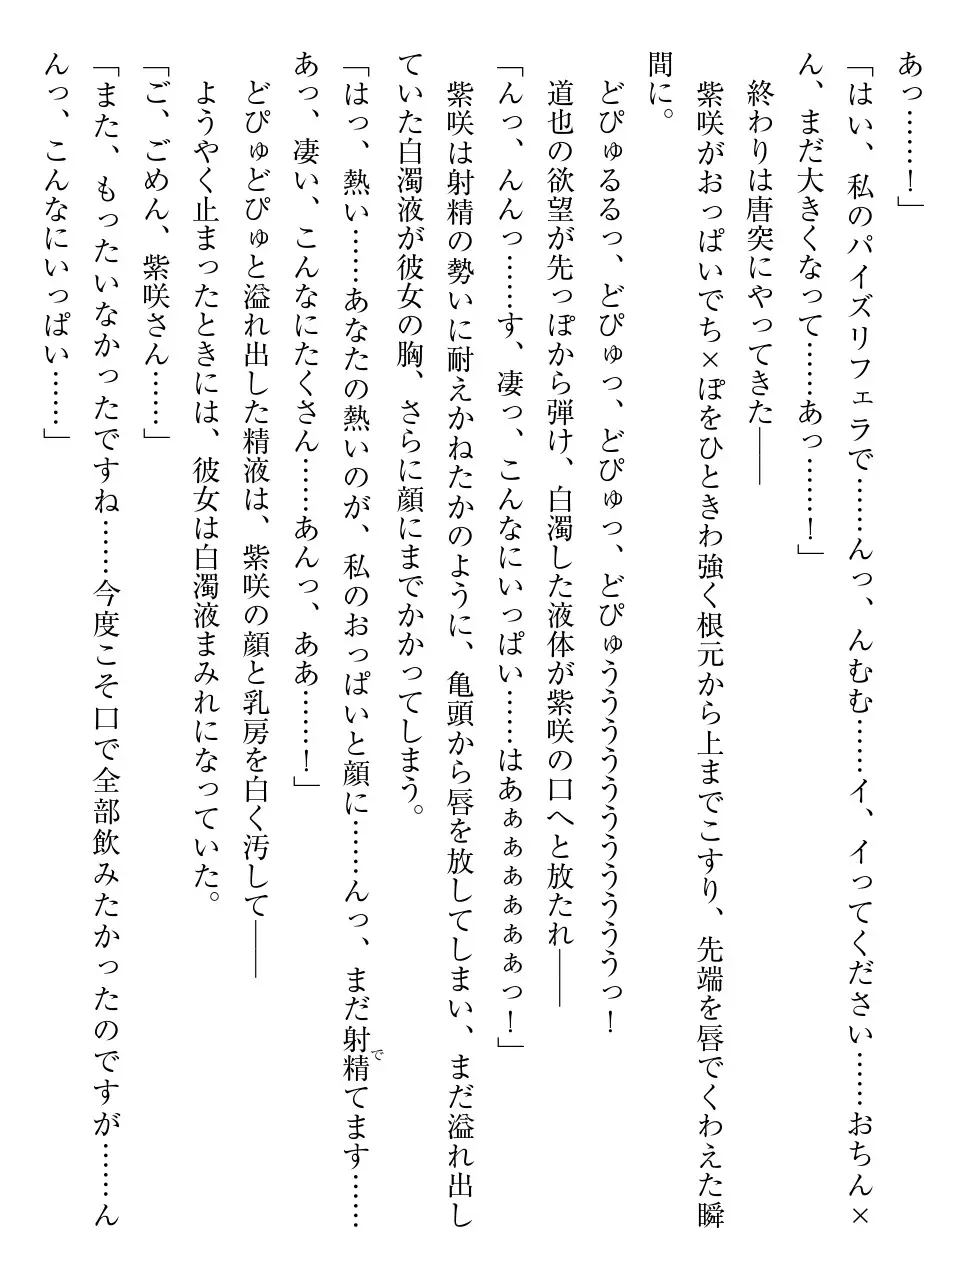 あっ……！」
「はい、私のパイズリフェラで……んっ、んむむ……イ、イってください……おちん×
ん、まだ大きくなって……あっ……！」
終わりは唐突にやってきた――
紫咲がおっぱいでち×ぽをひときわ強く根元から上までこすり、先端を唇でくわえた瞬
間に。
どぴゅるるっ、どぴゅっ、どぴゅっ、どぴゅうううううううううっ！
道也の欲望が先っぽから弾け、白濁した液体が紫咲の口へと放たれ――
「んっ、んんっ……す、凄っ、こんなにいっぱい……はあぁぁぁぁぁぁっ！」
紫咲は射精の勢いに耐えかねたかのように、亀頭から唇を放してしまい、まだ溢れ出し
ていた白濁液が彼女の胸、さらに顔にまでかかってしまう。
「はっ、熱い……あなたの熱いのが、私のおっぱいと顔に……んっ、まだ射精てます……
で
あっ、凄い、こんなにたくさん……あんっ、ああ……！」
どぴゅどぴゅと溢れ出した精液は、紫咲の顔と乳房を白く汚して――
ようやく止まったときには、彼女は白濁液まみれになっていた。
「ご、ごめん、紫咲さん……」
「また、もったいなかったですね……今度こそ口で全部飲みたかったのですが……ん
んっ、こんなにいっぱい……」